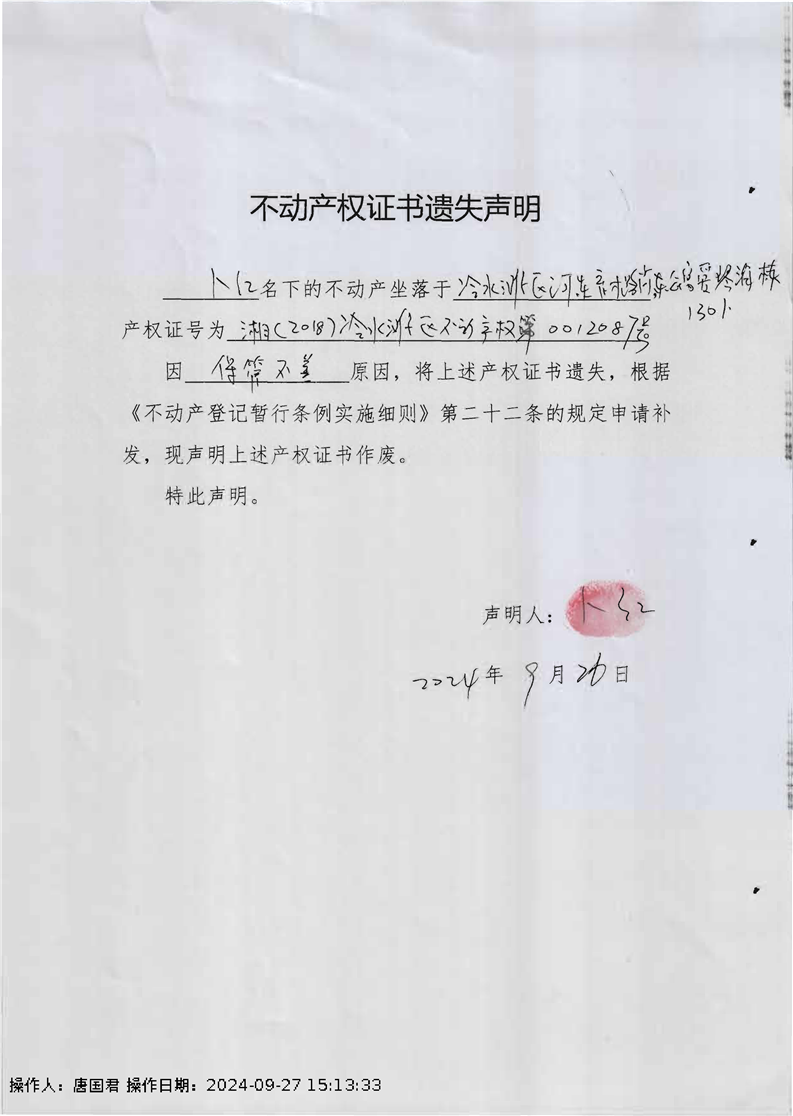 不动产权证书遗失声明
卜红名下的不动产坐落于冷水滩区河东
栋
1301
产权证号为湘(2018)冷水滩区不动产权第0012087号
因保管不善原因，将上述产权证书遗失，根据
《不动产登记暂行条例实施细则》第二十二条的规定申请补
发，现声明上述产权证书作废。
特此声明。
声明人：卜红
2024年9月26日
操作人：唐国君 操作日期：2024-09-27 15:13:33